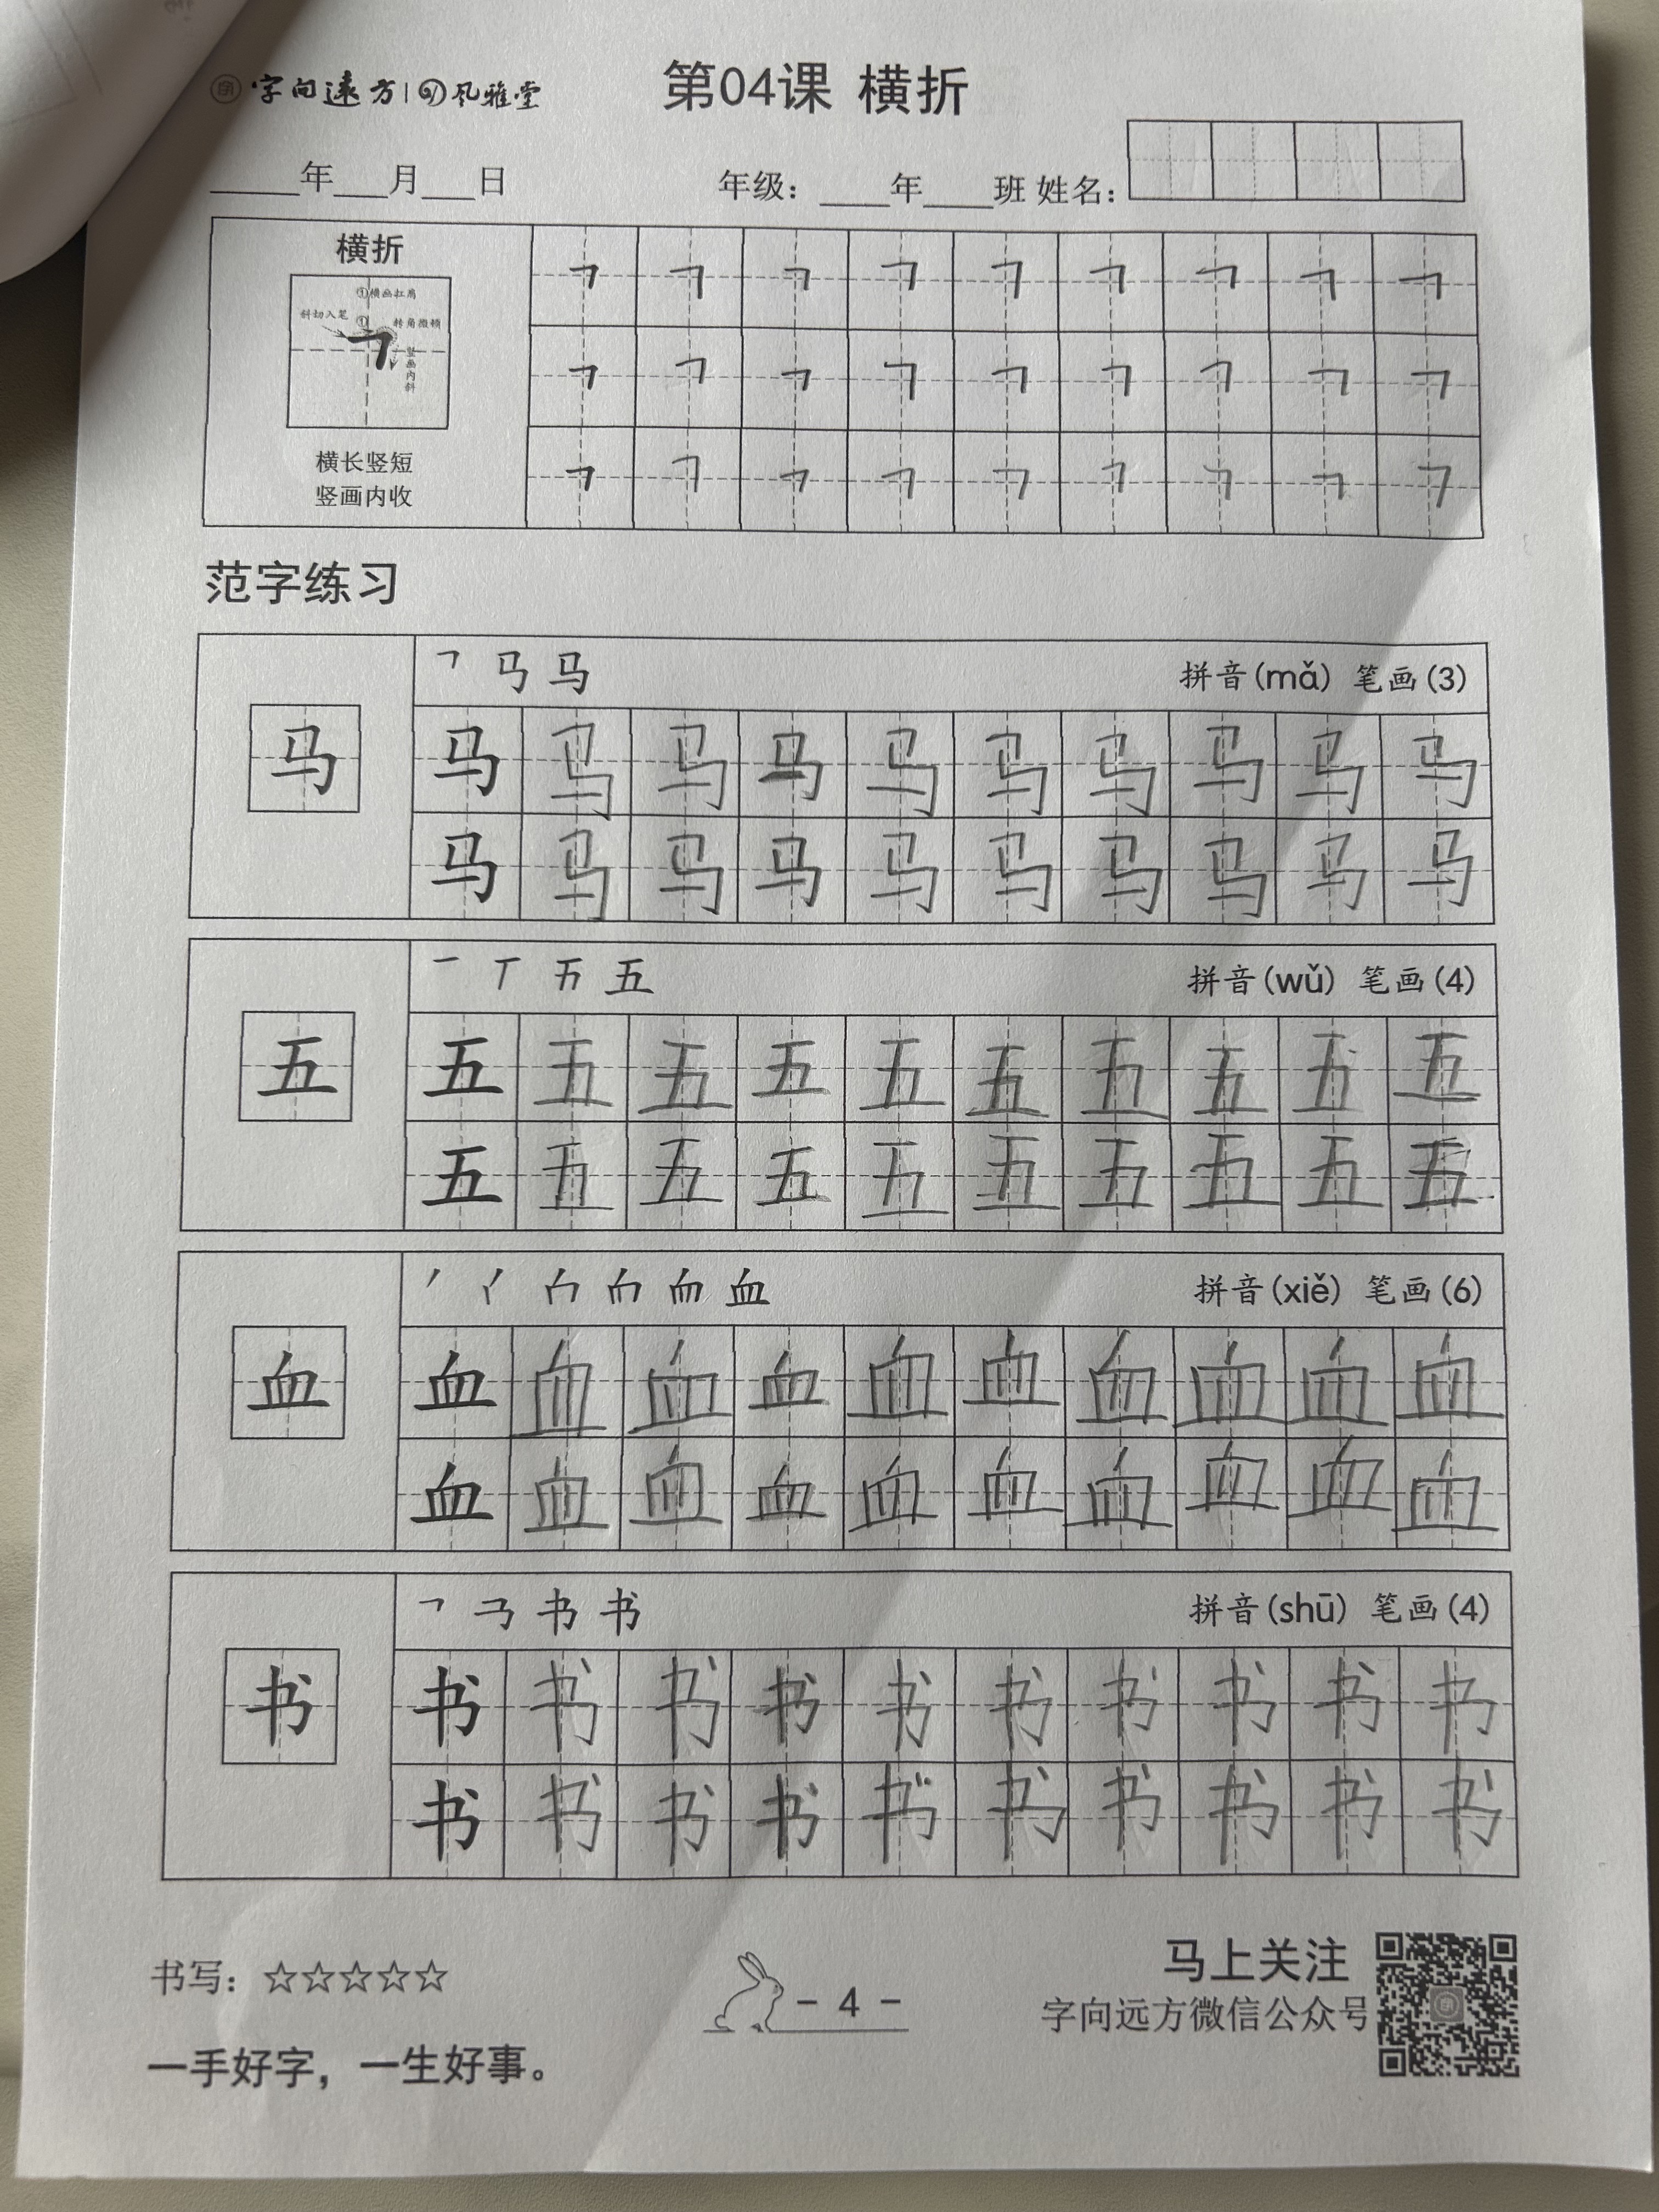 字向远方 风雅堂
第04课 横折
年 月 日 年级： 年 班 姓名：
横折
①横画扛肩
斜切入笔 ① 转角微顿
竖画内斜
横长竖短
竖画内收
㇕ ㇕ ㇕ ㇕ ㇕ ㇕ ㇕ ㇕ ㇕
㇕ ㇕ ㇕ ㇕ ㇕ ㇕ ㇕ ㇕ ㇕
㇕ ㇕ ㇕ ㇕ ㇕ ㇕ ㇕ ㇕ ㇕
范字练习
马 拼音(mǎ) 笔画(3)
马
马 马 马 马 马 马 马 马 马 马
马 马 马 马 马 马 马 马 马 马
五 拼音(wǔ) 笔画(4)
五
五 五 五 五 五 五 五 五 五 五
五 五 五 五 五 五 五 五 五 五
血 拼音(xiě) 笔画(6)
血
血 血 血 血 血 血 血 血 血 血
血 血 血 血 血 血 血 血 血 血
书 拼音(shū) 笔画(4)
书
书 书 书 书 书 书 书 书 书 书
书 书 书 书 书 书 书 书 书 书
书写：☆☆☆☆☆
一手好字，一生好事。
- 4 -
马上关注
字向远方微信公众号